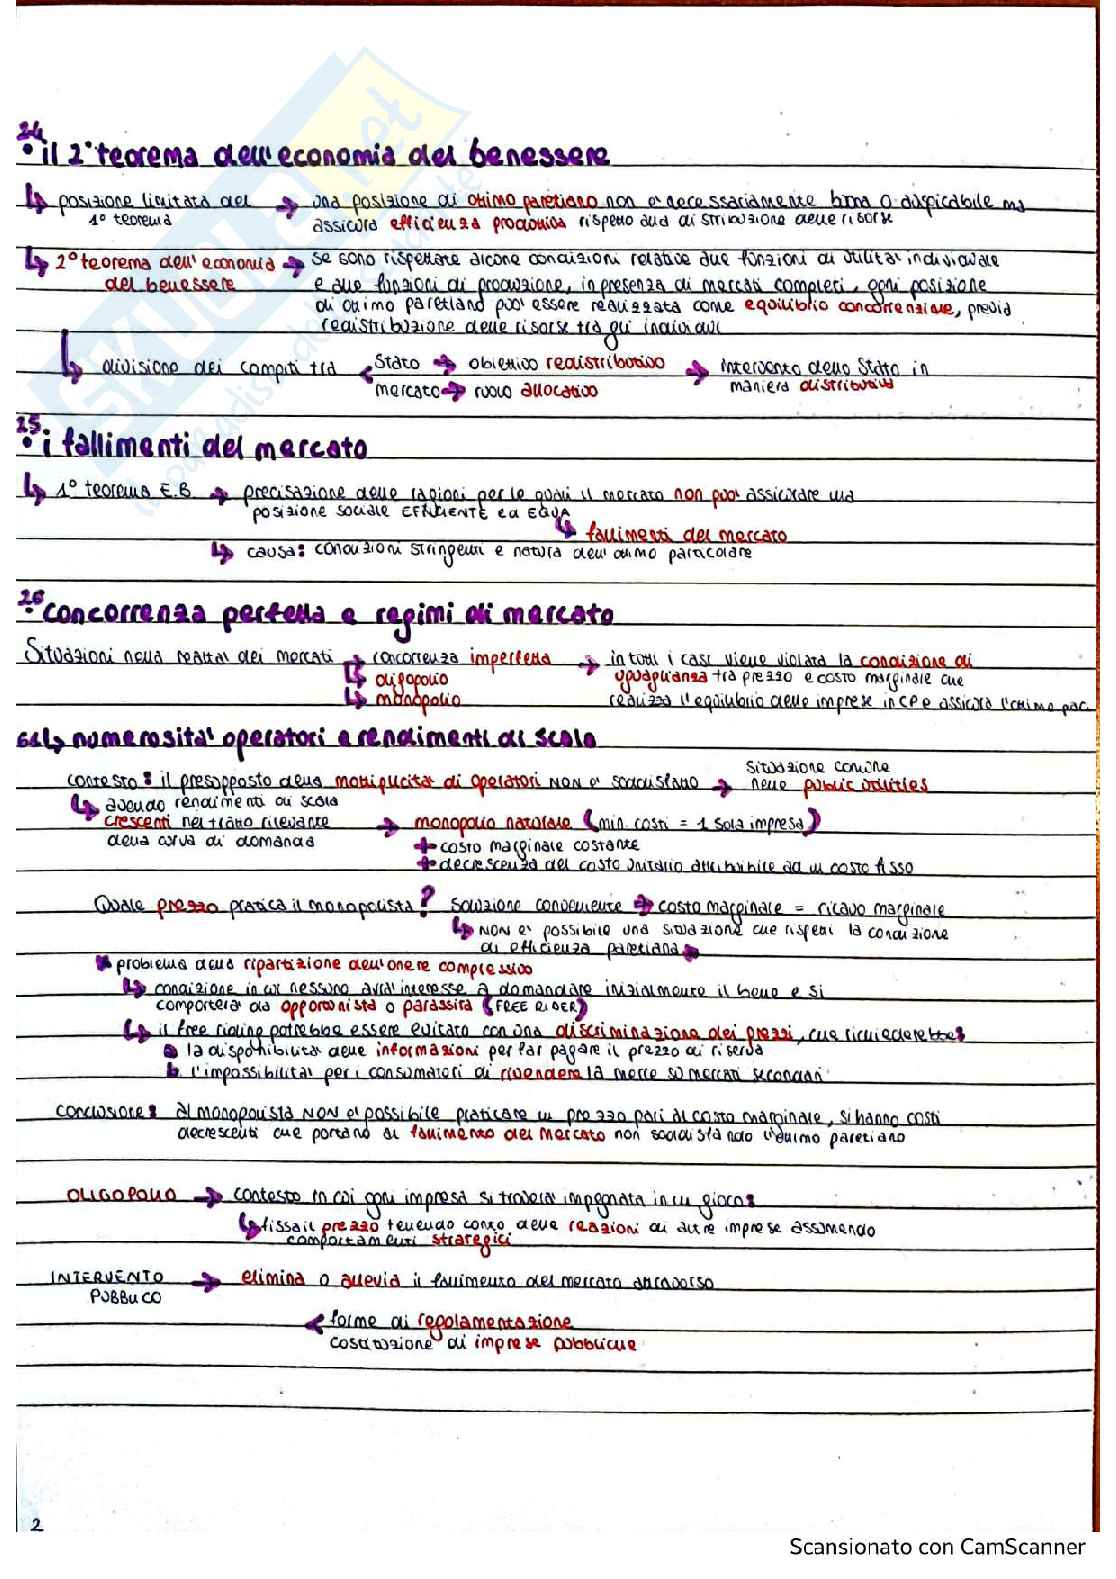 24
• il 2° teorema dell'economia del benessere
↳ posizione limitata del 1° teorema → una posizione di ottimo paretiano non è necessariamente buona o auspicabile ma
assicura efficienza produttiva rispetto alla distribuzione delle risorse
↳ 2° teorema dell'economia del benessere → se sono rispettate alcune condizioni relative alle funzioni di utilità individuale
e alle funzioni di produzione, in presenza di mercati completi, ogni posizione
di ottimo paretiano può essere realizzata come equilibrio concorrenziale, previa
redistribuzione delle risorse tra gli individui
↳ divisione dei compiti tra < Stato → obiettivo redistributivo → intervento dello Stato in
mercato → ruolo allocativo maniera distributiva
25
• i fallimenti del mercato
↳ 1° teorema E.B → precisazione delle ragioni per le quali il mercato non può assicurare una
posizione sociale EFFICIENTE ed EQUA
↳ fallimenti del mercato
↳ causa: condizioni stringenti e natura dell'ottimo particolare
26
• concorrenza perfetta e regimi di mercato
Situazioni nella realtà dei mercati → concorrenza imperfetta → in tutti i casi viene violata la condizione di
↳ oligopolio uguaglianza tra prezzo e costo marginale che
↳ monopolio realizza l'equilibrio delle imprese in CP e assicura l'ottimo par.
↳ numerosità operatori e rendimenti di scala
contesto: il presupposto della molteplicità di operatori NON è soddisfatto → situazione comune
nelle public utilities
↳ avendo rendimenti di scala
crescenti nel tratto rilevante → monopolio naturale (min. costi = 1 sola impresa)
della curva di domanda + costo marginale costante
+ decrescenza del costo unitario attribuibile ad un costo fisso
Quale prezzo pratica il monopolista? soluzione conveniente → costo marginale = ricavo marginale
↳ NON è possibile una situazione che rispetti la condizione
di efficienza paretiana
problema della ripartizione dell'onere complessivo
↳ condizione in cui nessuno avrà interesse a domandare inizialmente il bene e si
comporterà da opportunista o parassita (FREE RIDER)
↳ il free riding potrebbe essere evitato con una discriminazione dei prezzi, che richiederebbe:
a la disponibilità delle informazioni per far pagare il prezzo di riserva
b l'impossibilità per i consumatori di rivendere la merce su mercati secondari
Conclusione: al monopolista NON è possibile praticare un prezzo pari al costo marginale, si hanno costi
decrescenti che portano al fallimento del mercato non soddisfando l'ottimo paretiano
OLIGOPOLIO → contesto in cui ogni impresa si troverà impegnata in un gioco:
↳ fissa il prezzo tenendo conto delle reazioni di altre imprese assumendo
comportamenti strategici
INTERVENTO PUBBLICO → elimina o allevia il fallimento del mercato attraverso
< forme di regolamentazione
costituzione di imprese pubbliche
2
Scansionato con CamScanner